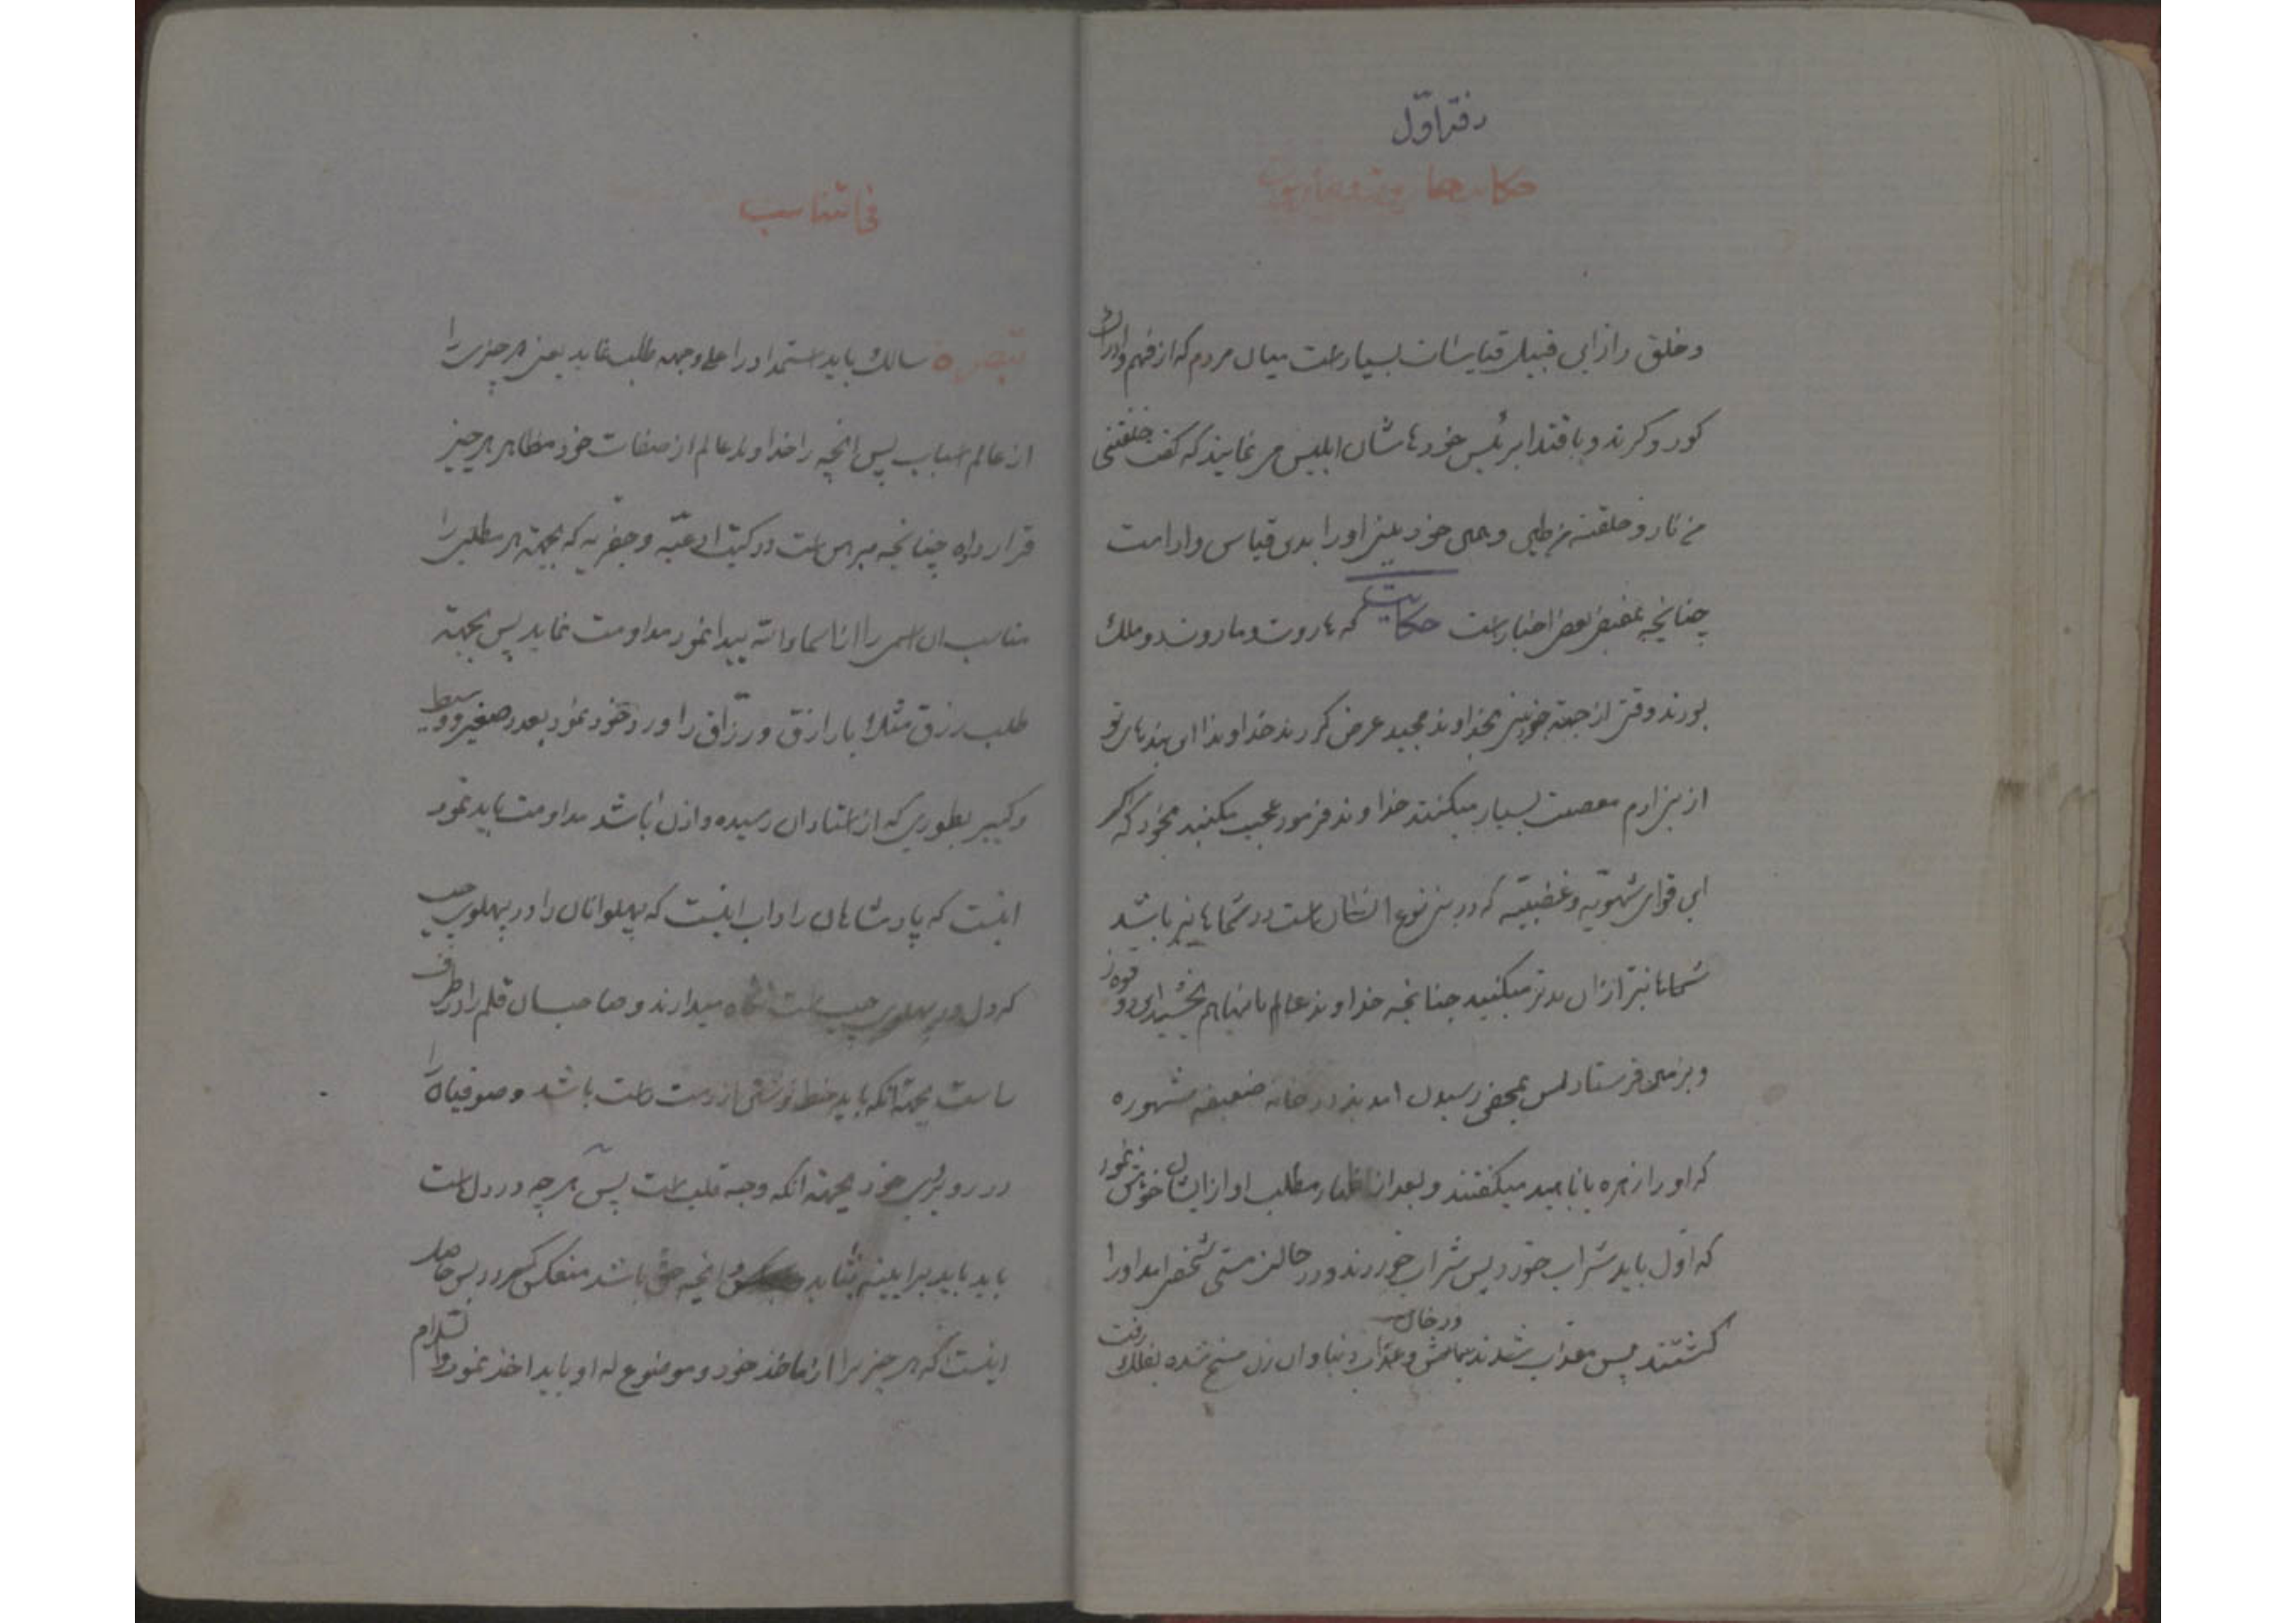 دفتر اوّل
حکایت هاروت و ماروت
و خلق را از این قبیل قیاسات بسیار است میان مردم که از فهم و ادراک
کور و کرند و باقتدا برئیس خودهاشان ابلیس می نمایند که گفت خلقتنی
من نار و خلقته من طین و همین خود بینی او را بدین قیاس وا داشت
چنانچه بعضی اخبار است حکایت که هاروت و ماروت دو ملک
بودند وقتی از جهة خودبینی بخداوند مجید عرض کردند خداوندا این بندهای تو
از بنی ادم معصیت بسیار میکنند خداوند فرمود عجب مکنید بخود که اگر
این قوای شهویّه و غضبیّه که در بنی نوع انسان است در شماها نیز باشد
شماها نیز از ان بدتر میکنید چنانچه خداوند عالم بانها هم بخشید این دو قوه را
و بزمین فرستاد پس بمحض رسیدن امدند در خانه ضعیفه مشهوره
که او را زهره یا ناهید میگفتند و بعد از اظهار مطلب او از ایشان خواهش نمود
که اوّل باید شراب خورد پس شراب خوردند و در حالت مستی شخصی امد او را
کشتند پس معذّب شدند بعذاب دنیا و ان زن مسخ شده بفلک رفت
فی التناسب
تبصره سالک باید استمداد را علی وجهه طلب نماید یعنی هر چیزی را
از عالم اسباب پس انچه را خداوند عالم از صفات خود مظاهر هر چیز
قرار داده چنانچه مبرهن است در کتب ادعیّه و جفریه که بجهة هر مطلبی را
مناسب ان اسمی را از اسماء الله پیدا نمود مداومت نماید پس بجهة
طلب رزق مثلا یا رازق و رزّاق را ورد خود نمود بعدد صغیر و وسیط
و کبیر بطوری که از استادان رسیده و اذن باشد مداومت باید نمود
اینست که پادشاهان را داب اینست که پهلوانان را در پهلوی چپ
که دل در پهلوی چپ است نگاه میدارند و صاحبان قلم را در طرف
راست بجهة انکه باید خط نوشتن از دست راست باشد و صوفیان را
در روبروی خود بجهة انکه وجه قلب است پس هر چه در دل است
باید باید برایینه بتابد انچه حق باشد منعکس گردد پس حاصل
اینست که هر چیز را از ماخذ خود و موضوع له او باید اخذ نمود والسلام